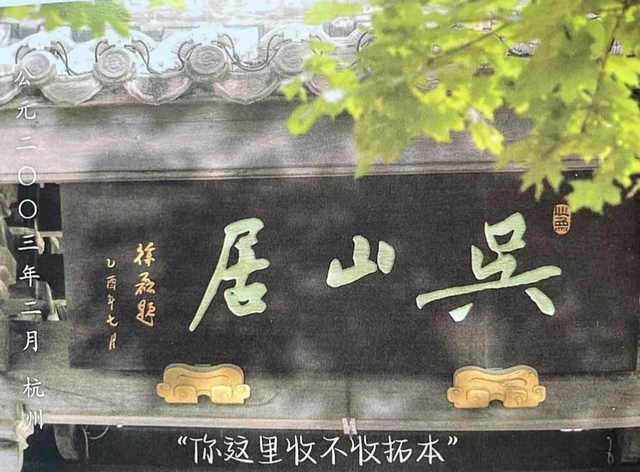 公元二〇〇三年二月 杭州
吴山居
徐磊题
乙酉年七月
“你这里收不收拓本”